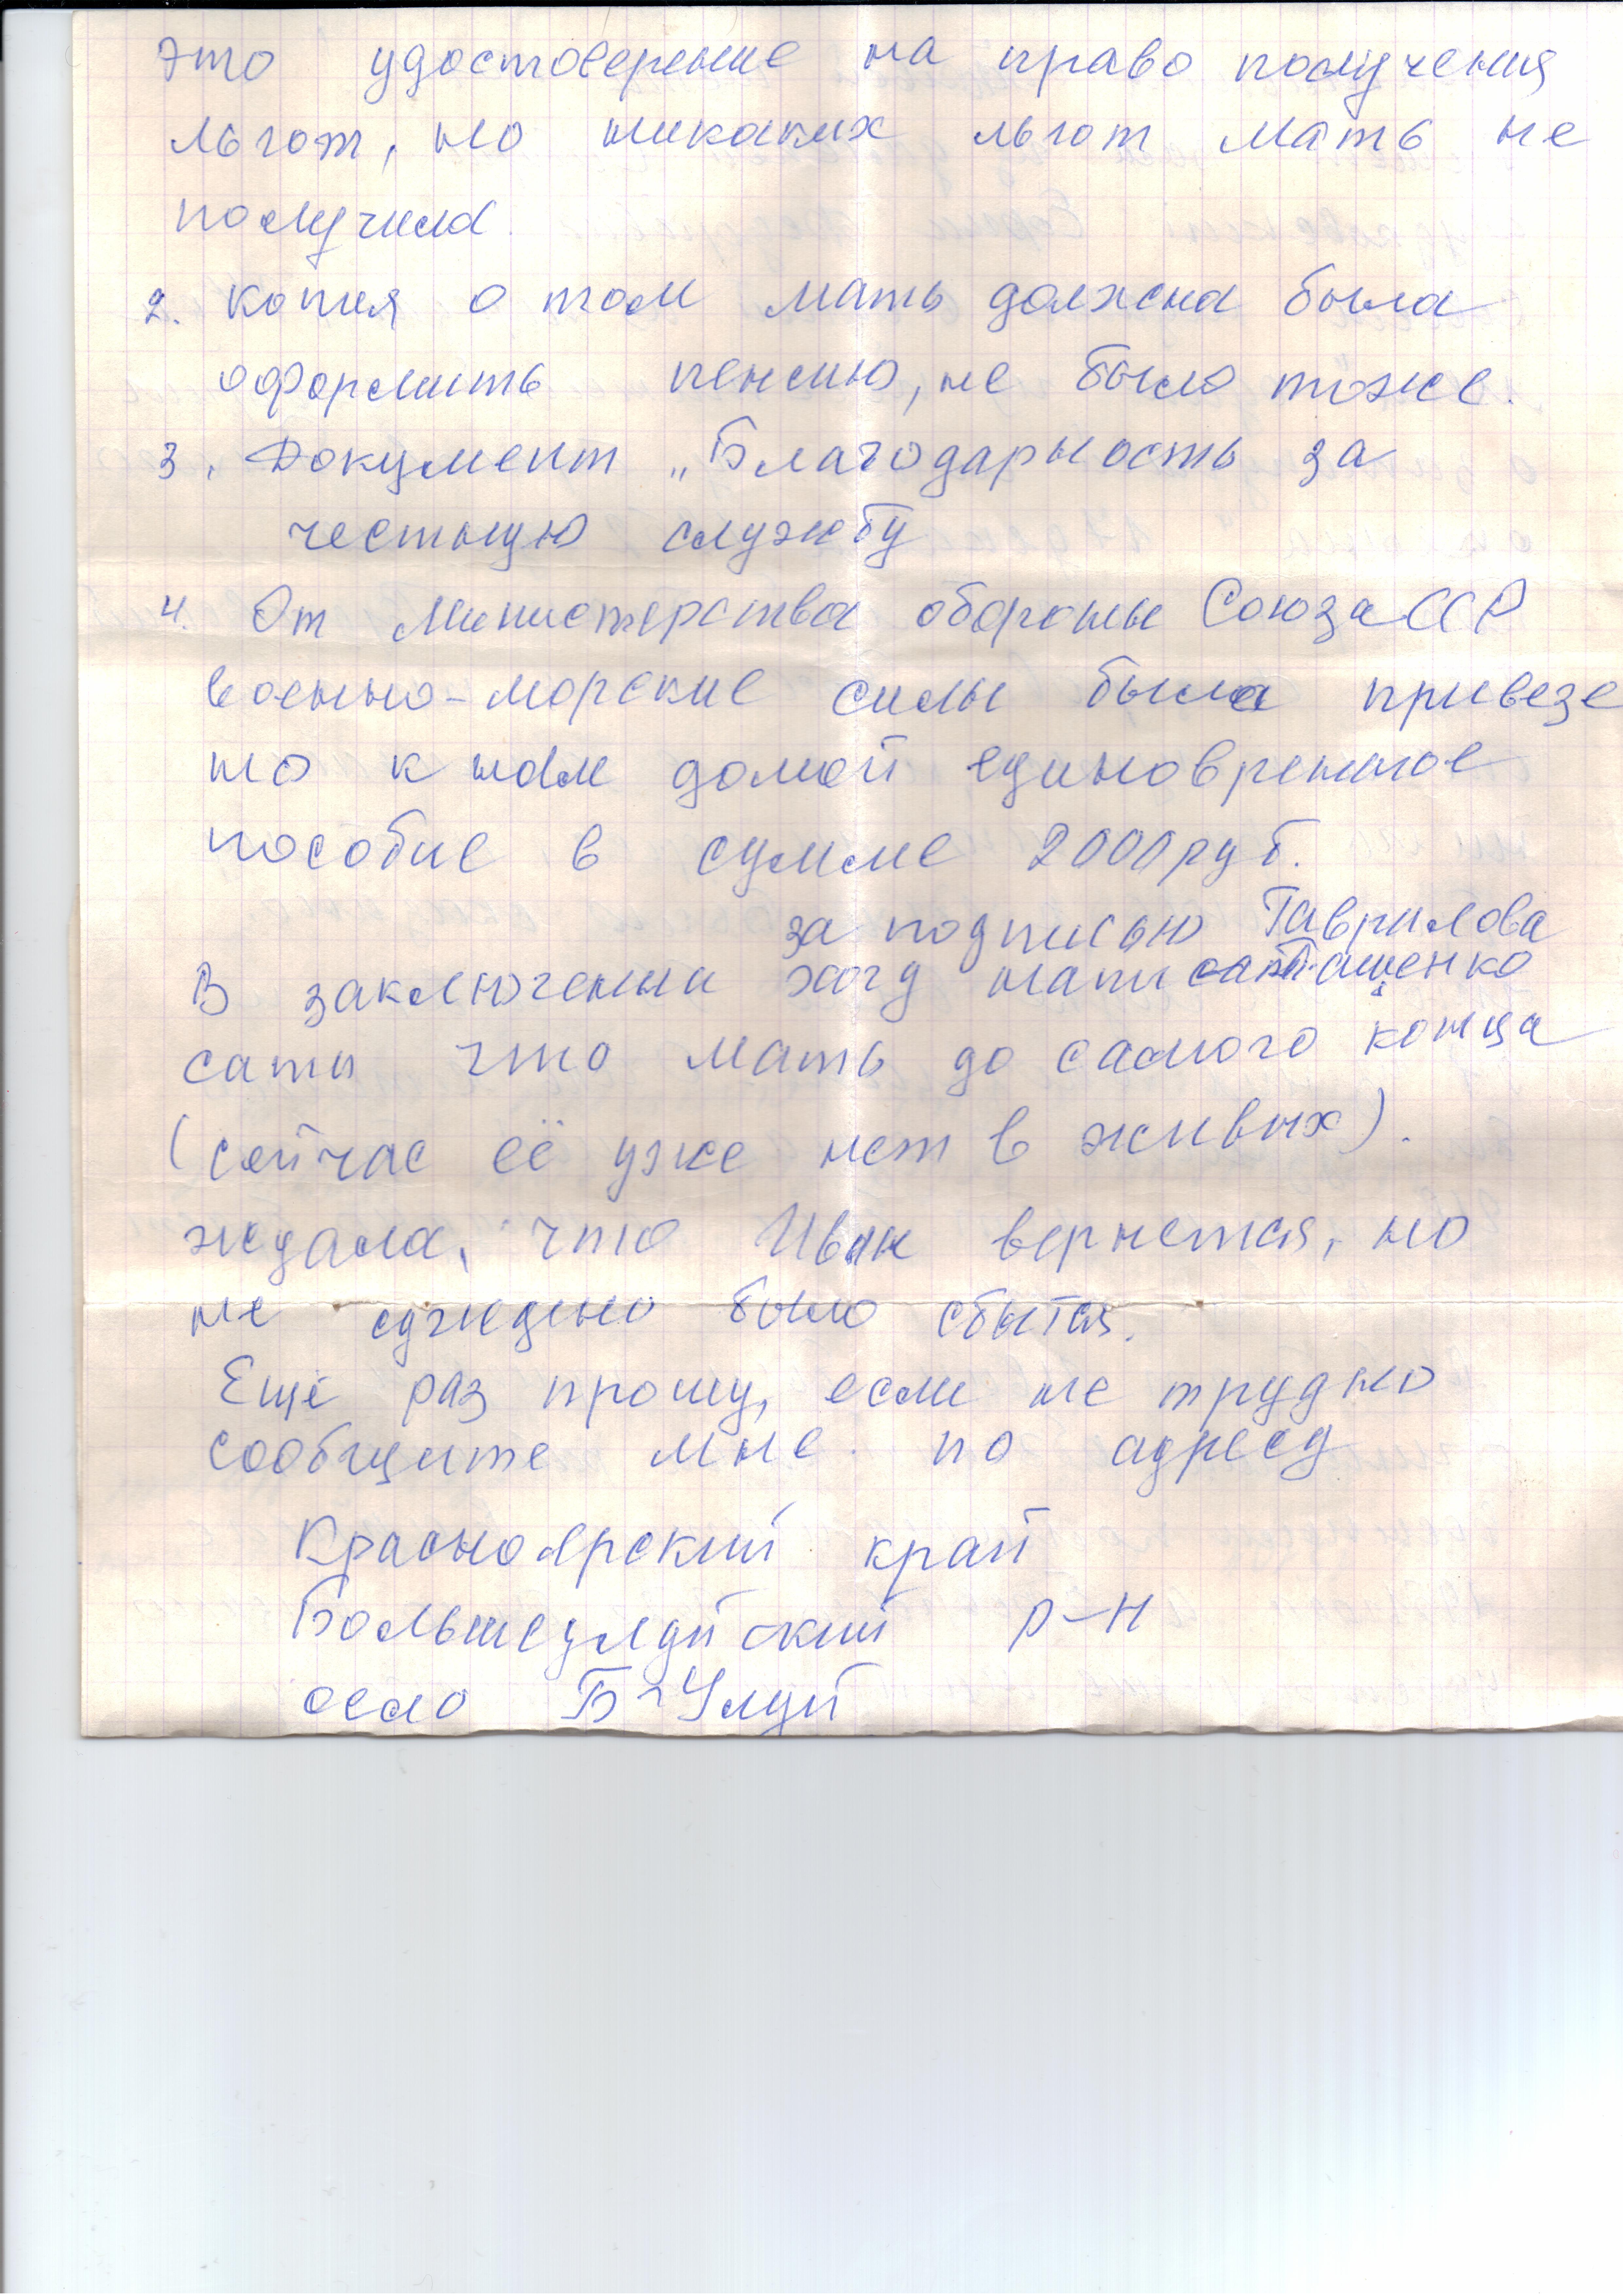 это удостоверение на право получения
льгот, но никаких льгот мать не
получила.
2. Копия о том мать должна была
оформить пенсию, не было тоже.
3. Документ „Благодарность за
честную службу
4. От Министерства обороны Союза ССР
военно-морские силы была привезе
но к нам домой единовременное
пособие в сумме 2000 руб.
за подписью Гаврилова
В заключении хочу напи Пащенко
сать что мать до самого конца
(сейчас её уже нет в живых).
ждала, что Иван вернется, но
не суждено было сбытся.
Ещё раз прошу, если не трудно
сообщите мне по адресу
Красноярский край
Большеулуйский р-н
село Б-Улуй